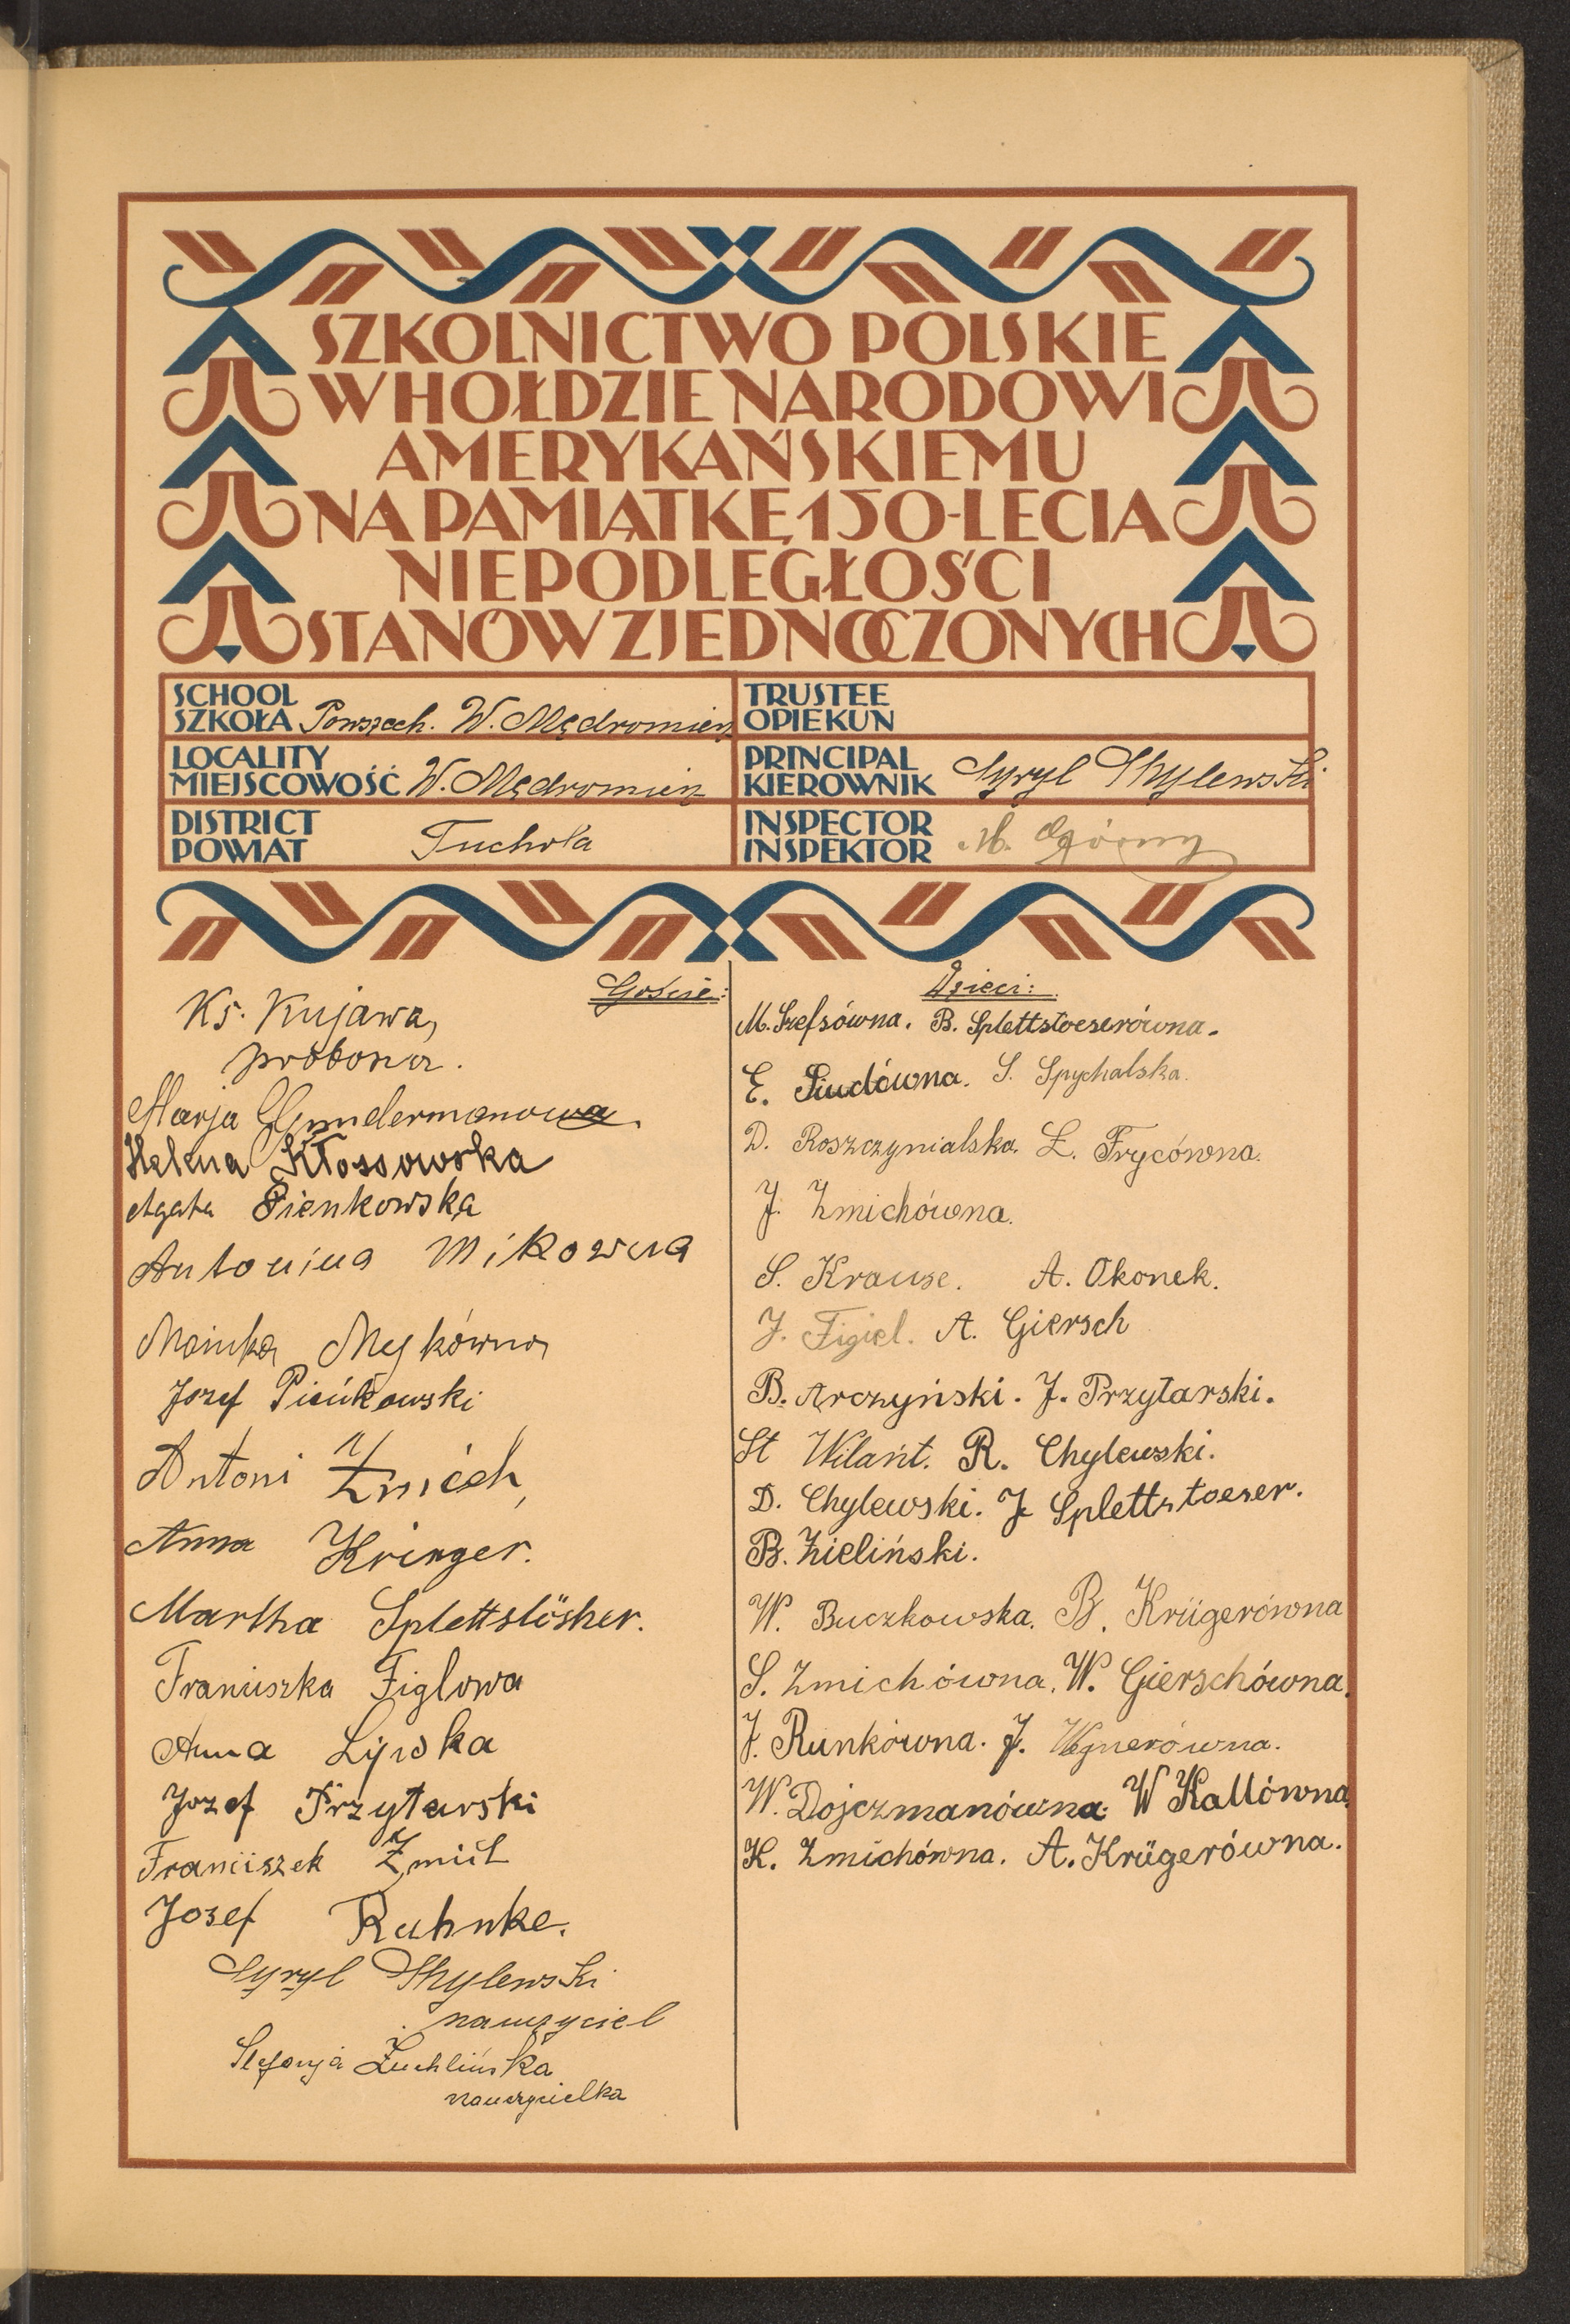 SZKOLNICTWO POLSKIE
W HOŁDZIE NARODOWI
AMERYKAŃSKIEMU
NA PAMIĄTKĘ 150-LECIA
NIEPODLEGŁOŚCI
STANÓW ZJEDNOCZONYCH
SCHOOL
SZKOŁA Powszech. W. Mędromierz
LOCALITY
MIEJSCOWOŚĆ W. Mędromierz
DISTRICT
POWIAT Tuchola
TRUSTEE
OPIEKUN
PRINCIPAL
KIEROWNIK Cyryl Chylewski
INSPECTOR
INSPEKTOR Górny
Goście:
Ks. Kujawa,
proboszcz.
Marja Gundermanowa.
Helena Kłossowska
Agata Pienkowska
Antonina Mikowna
Mykówna
Jozef Pieńkowski
Antoni Żmich,
Anna Kringer.
Martha Splettslösher.
Franciszka Figlowa
Anna
Jozef Przytarski
Franciszek Żmich
Jozef Ruhnke.
Cyryl Chylewski
nauczyciel
Stefanja Żuchlińska
nauczycielka
Dzieci:
M. Szefsówna. B. Splettstoeserówna.
E. Piudówna. S. Spychalska.
D. Roszczynialska. Ł. Frycówna.
J. Zmichówna.
S. Krause. A. Okonek.
J. Figiel. A. Giersch
B. Arczyński. J. Przytarski.
St Wilant. R. Chylewski.
D. Chylewski. J Splettstoeser.
B. Zieliński.
W. Buczkowska. B. Krügerówna
S. Zmichówna. W. Gierschówna.
J. Runkówna. J. Wegnerówna.
W. Dojczmanówna. W Kallówna.
K. Zmichówna. A. Krügerówna.